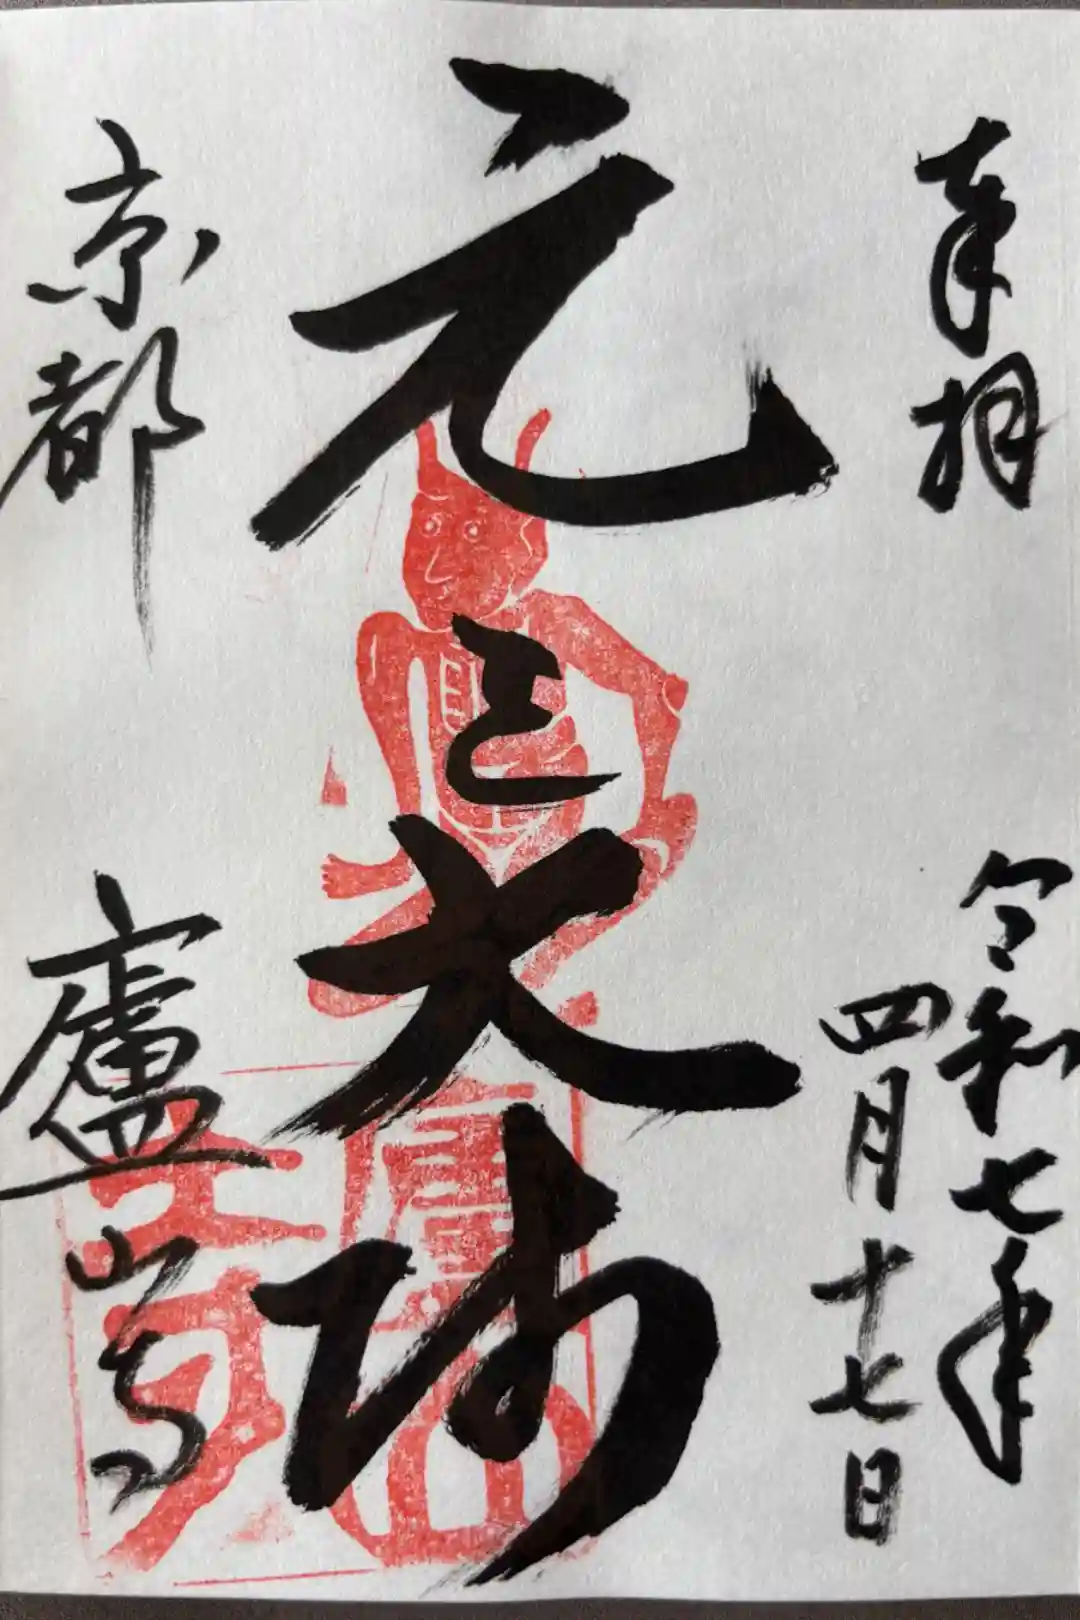 奉拝
令和七年
四月十七日
元三大師
京都
廬山寺
廬山寺